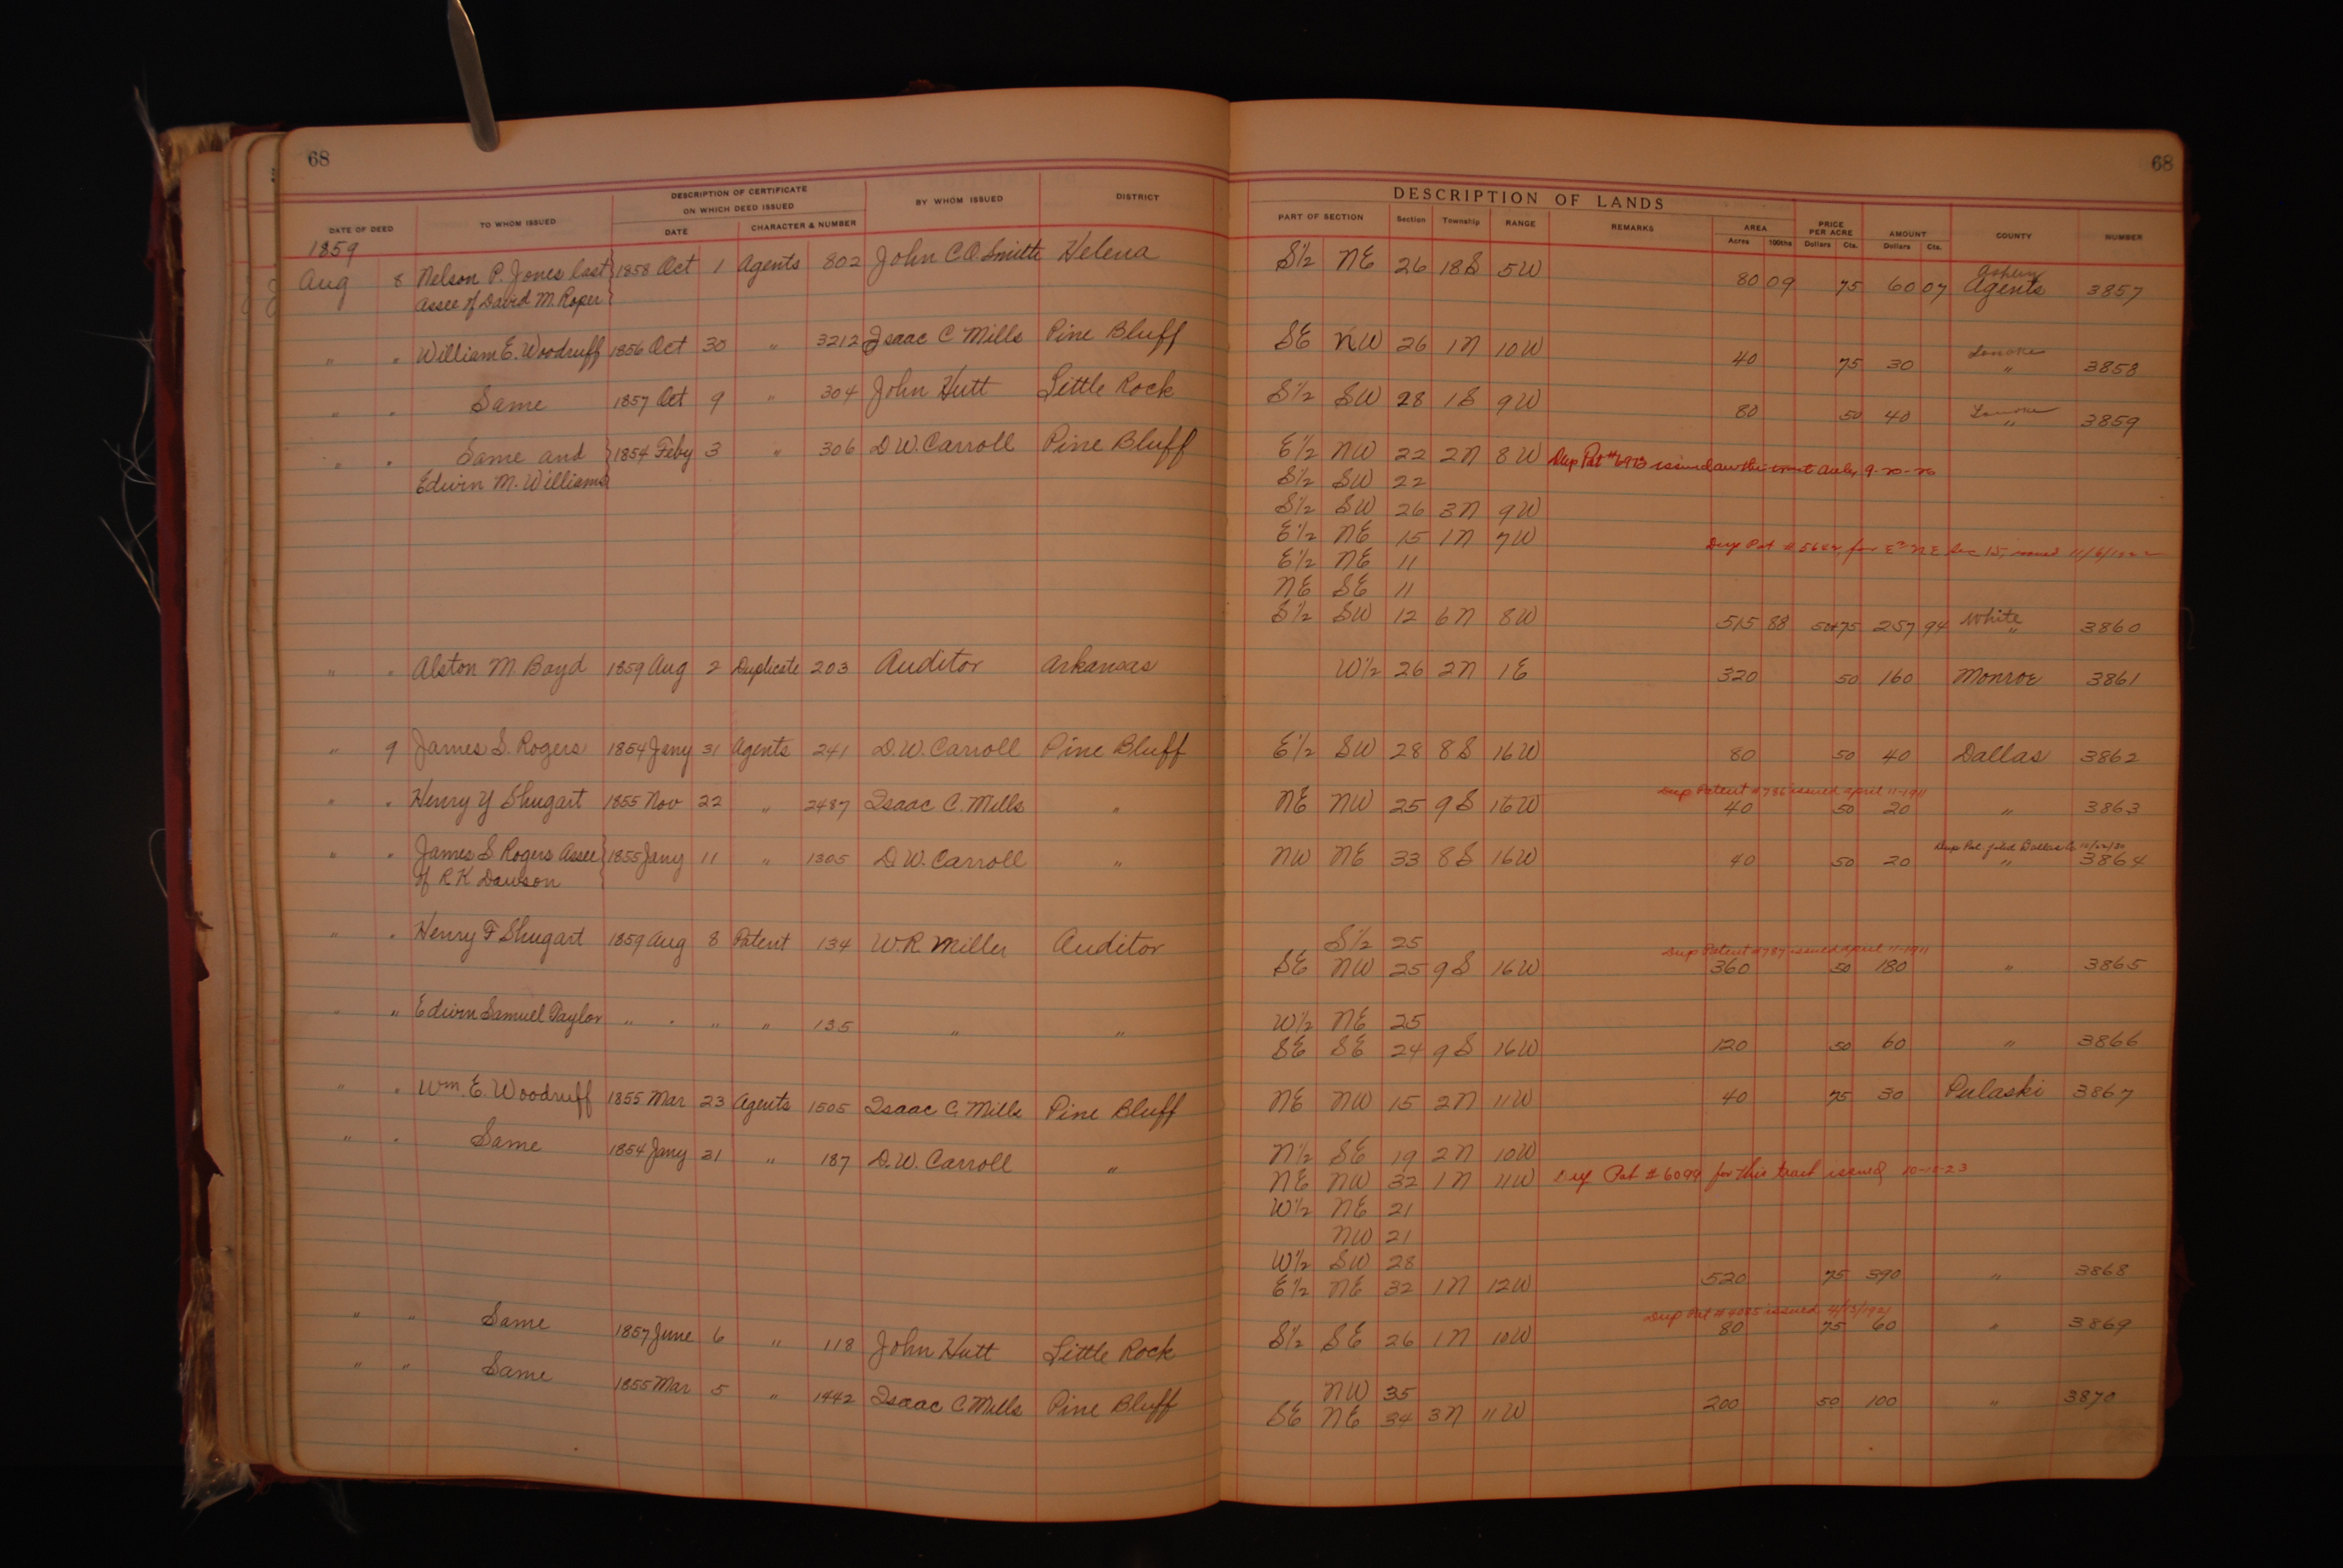 68
68
DESCRIPTION OF CERTIFICATE
ON WHICH DEED ISSUED
DESCRIPTION OF LANDS
DATE OF DEED TO WHOM ISSUED DATE CHARACTER & NUMBER BY WHOM ISSUED DISTRICT PART OF SECTION Section Township RANGE REMARKS AREA Acres 100ths PRICE PER ACRE Dollars Cts. AMOUNT Dollars Cts. COUNTY NUMBER
1859
Ashley
Aug 8 Nelson P. Jones last 1858 Oct 1 Agents 802 John C.Q. Smith Helena S½ NE 26 18S 5W 80 09 75 60 07 Agents 3857
Assee of David M. Roper
Lonoke
" " William E. Woodruff 1856 Oct 30 " 3212 Isaac C. Mills Pine Bluff SE NW 26 1N 10W 40 75 30 " 3858
Lonoke
" " Same 1857 Oct 9 " 304 John Hutt Little Rock S½ SW 28 1S 9W 80 50 40 " 3859
" " Same and 1854 Feby 3 " 306 D.W. Carroll Pine Bluff E½ NW 22 2N 8W Dup Pat #6973 issued 9-20-26
Edwin M. Williams S½ SW 22
S½ SW 26 3N 9W
E½ NE 15 1N 7W
Dup Pat # for E½ NE Sec 15, issued
E½ NE 11
NE SE 11
S½ SW 12 6N 8W 515 88 50&75 257 94 White " 3860
" " Alston M Boyd 1859 Aug 2 Duplicate 203 Auditor Arkansas W½ 26 2N 1E 320 50 160 Monroe 3861
" 9 James S. Rogers 1854 Jany 31 Agents 241 D.W. Carroll Pine Bluff E½ SW 28 8S 16W 80 50 40 Dallas 3862
Dup Patent #786 issued april 11-1911
" " Henry Y Shugart 1855 Nov 22 " 2487 Isaac C. Mills " NE NW 25 9S 16W 40 50 20 " 3863
Dup Pat. Dallas Co
" " James S Rogers Assee 1855 Jany 11 " 1305 D.W. Carroll " NW NE 33 8S 16W 40 50 20 " 3864
of R K Dawson
" " Henry F Shugart 1859 Aug 8 Patent 134 W.R. Miller Auditor S½ 25
Dup Patent #787 issued april 11-1911
SE NW 25 9S 16W 360 50 180 " 3865
" " Edwin Samuel Taylor " " " " 135 " " W½ NE 25
SE SE 24 9S 16W 120 50 60 " 3866
" " Wm. E. Woodruff 1855 Mar 23 Agents 1505 Isaac C. Mills Pine Bluff NE NW 15 2N 11W 40 75 30 Pulaski 3867
" " Same 1854 Jany 31 " 187 D.W. Carroll " N½ SE 19 2N 10W
NE NW 32 1N 11W Dup Pat #6099 for this tract issued
W½ NE 21
NW 21
W½ SW 28
E½ NE 32 1N 12W 520 75 390 " 3868
Dup Pat issued 4/13/1921
" " Same 1857 June 6 " 118 John Hutt Little Rock S½ SE 26 1N 10W 80 75 60 " 3869
" " Same 1855 Mar 5 " 1442 Isaac C Mills Pine Bluff NW 35
SE NE 34 3N 11W 200 50 100 " 3870